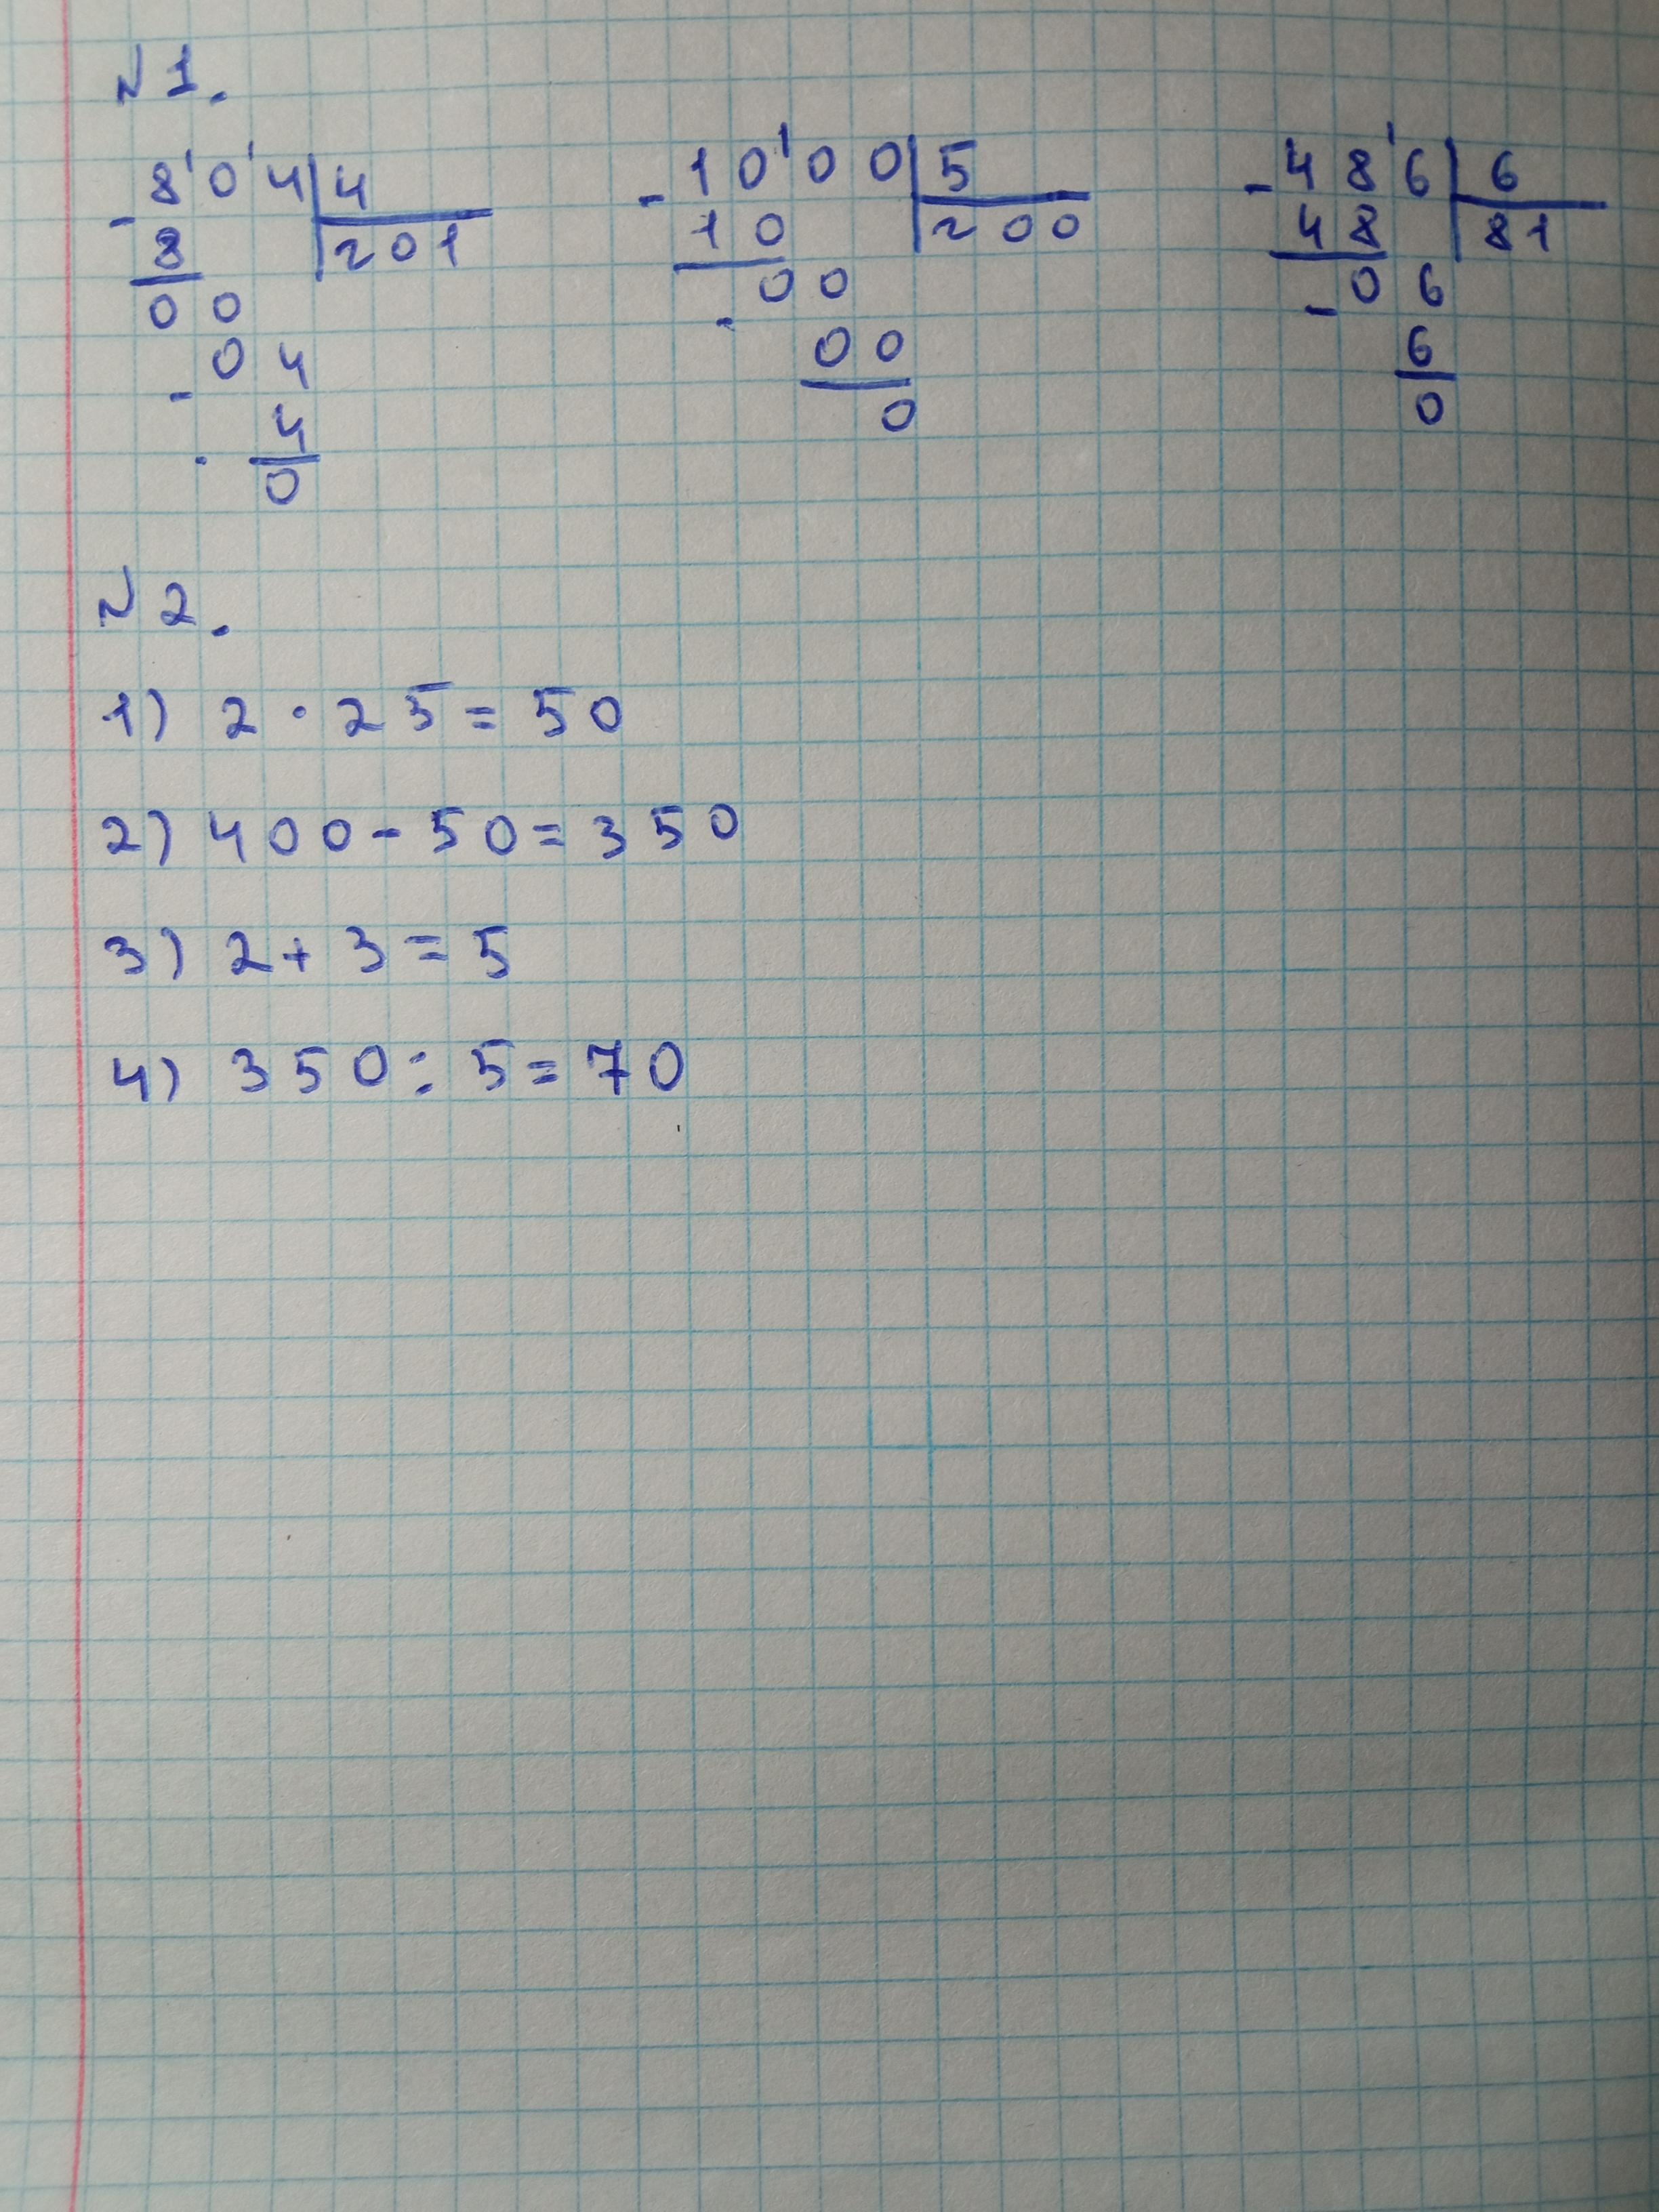 N 1.
8'0'4 | 4
- 8 | 201
0 0
0 4
- 4
0
- 10'00 | 5
10 | 200
00
- 00
0
- 48'6 | 6
48 | 81
- 06
6
0
N 2.
1) 2 · 25 = 50
2) 400 - 50 = 350
3) 2 + 3 = 5
4) 350 : 5 = 70